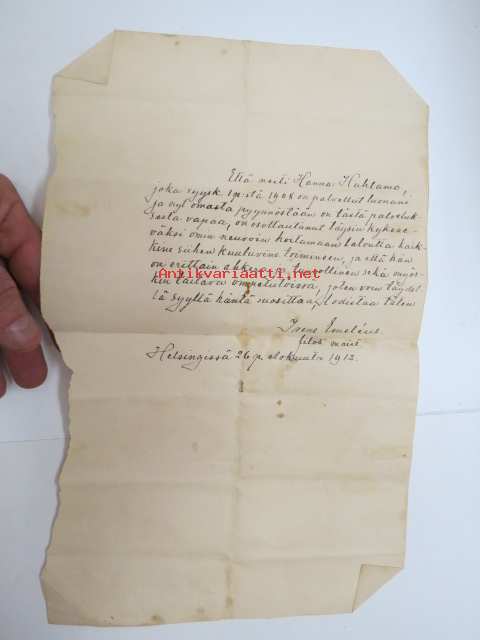 Että neiti Hanna Huhtamo,
joka syysk. 1 p:stä 1908 on palvellut luonani
ja nyt omasta pyynnöstään on tästä palveluk-
sesta vapaa, on osottautunut täysin kykene-
väksi omin neuvoin hoitamaan taloutta kaik-
kine siihen kuuluvine toimineen, ja että hän
on erittäin sekä myös-
kin taitava ompelutöissä, joten voin täydel-
lä syyllä häntä suosittaa, todistaa täten
Irene Emeléus
filos. maist.
Helsingissä 26 p. elokuuta 1912.
Antiikvariaatti.net